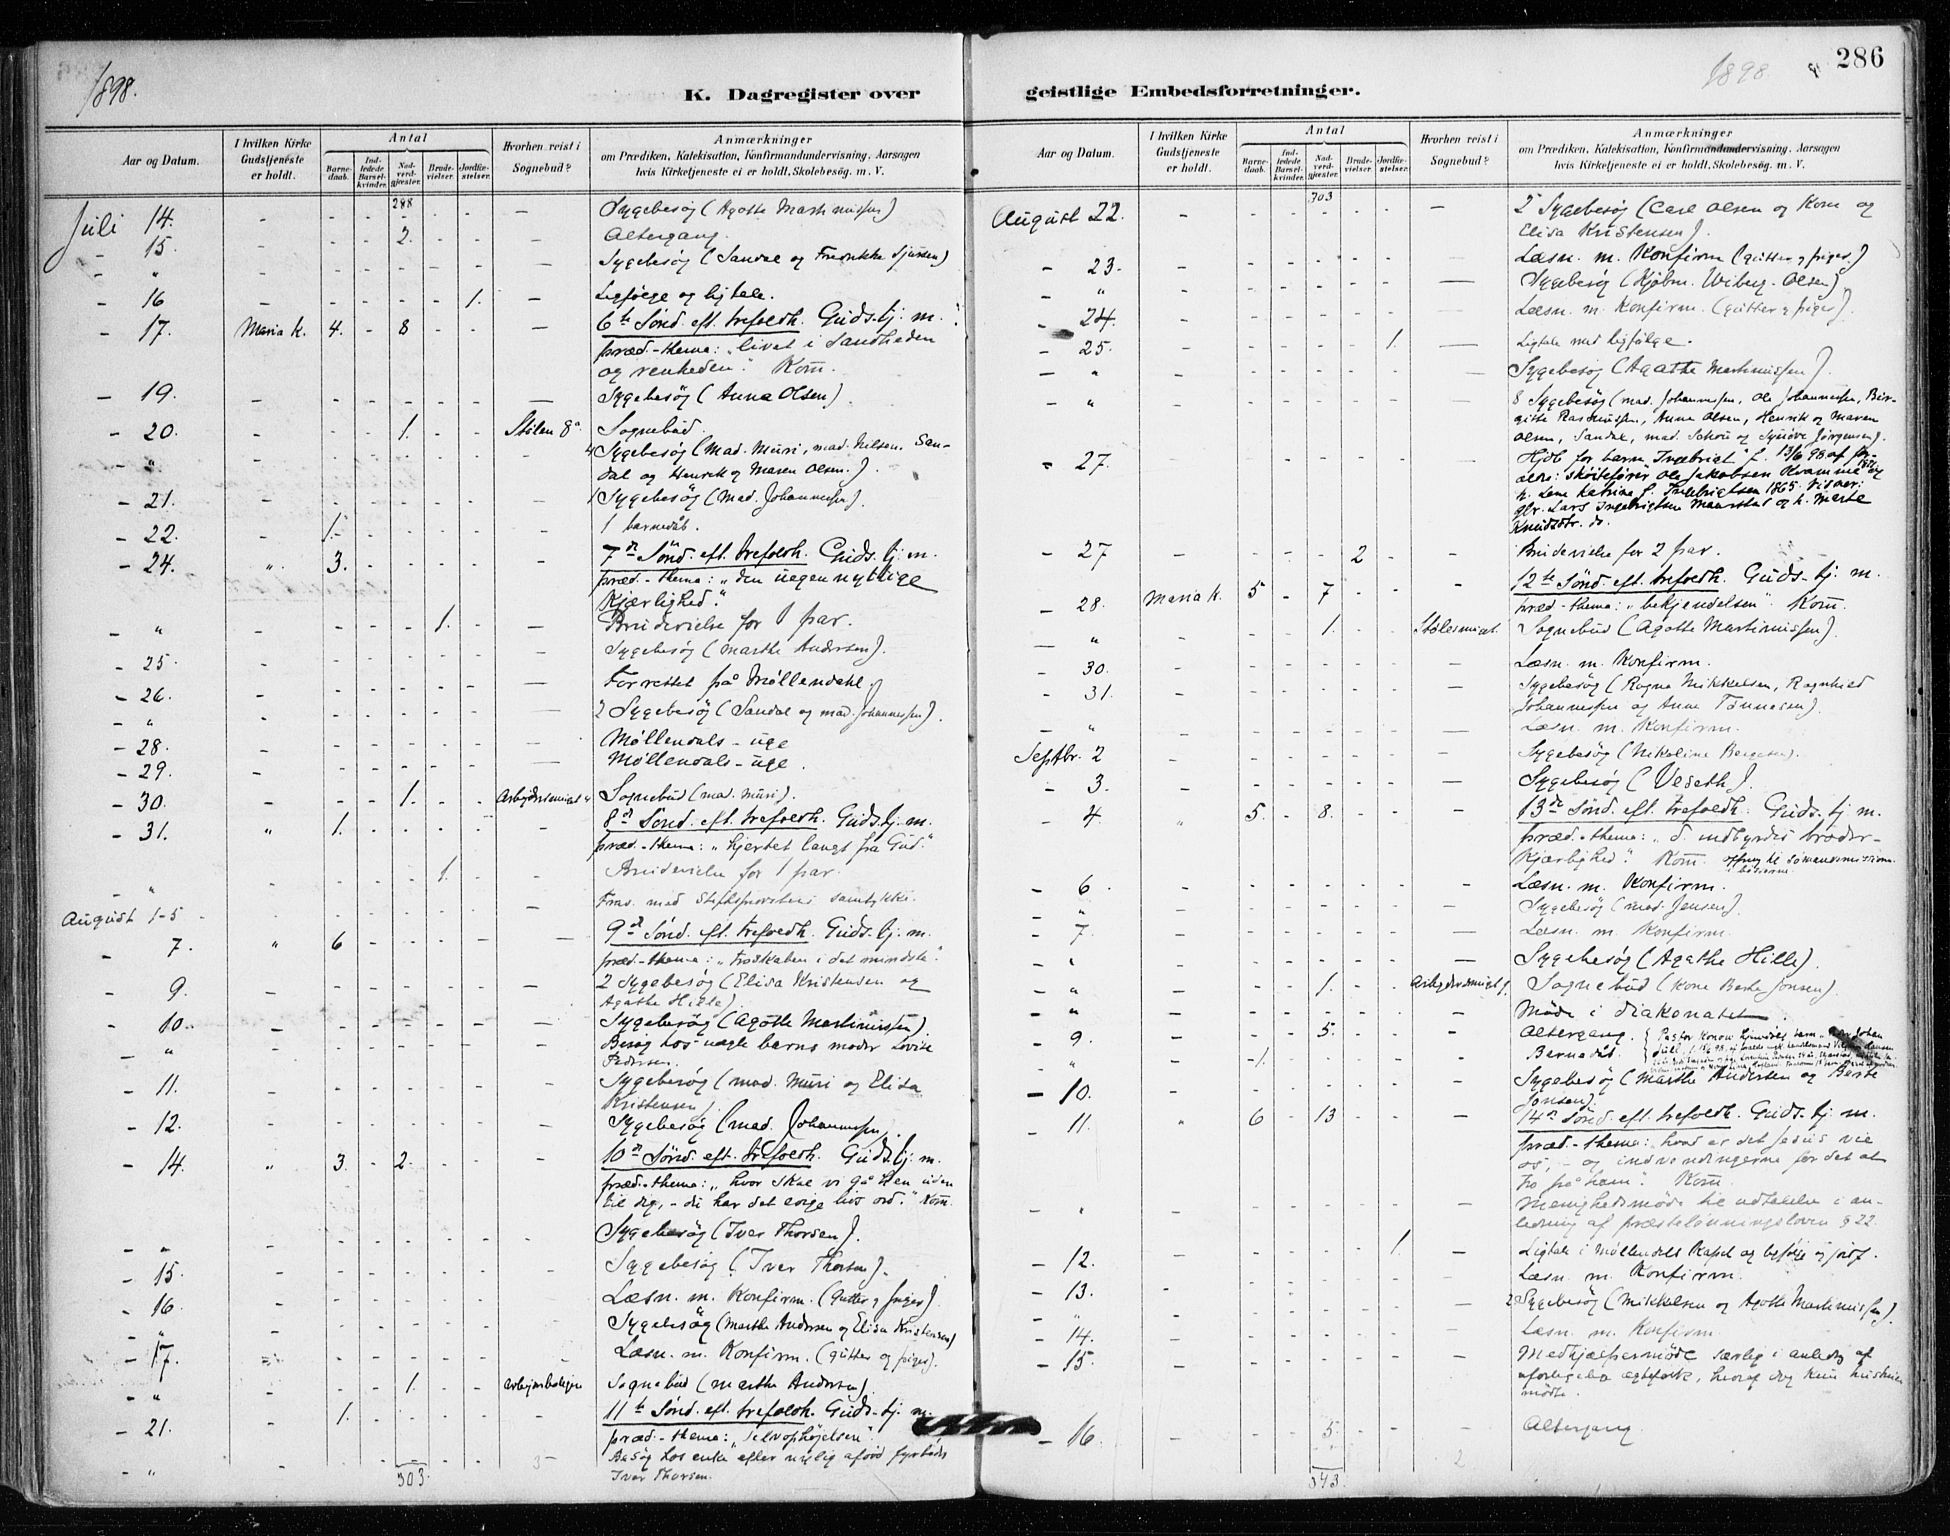 1898.
K. Dagregister over
Aar og Datum.
I hvilken Kirke Gudstjeneste er holdt.
Antal
Barnedaab.
Indledede Barselkvinder.
Nadverdgjæster.
Brudevielser.
Jordfæstelser.
Hvorhen reist i Sognebud?
Anmærkninger
om Prædiken, Katekisation, Konfirmandundervisning, Aarsagen
hvis Kirketjeneste ei er holdt, Skolebesøg. m. V.
288
Juli 14. - - - - - - - Sygebesög (Agathe Martinussen)
- 15. - - - 2. - - - Altergang.
- " - - - - - - - Sygebesög (Sandal og Fredrikke Sjursen)
- 16 - - - - - 1. - Ligfölge og ligtale.
- 17. Maria k. 4. - 8 - - - 6te Sönd. eft. trefoldh. Guds.tj. m.
præd.-thema: "livet i Sandheden
og renheden." Kom.
- 19. - - - - - - - Sygebesög (Anna Olsen)
- 20. - - - 1. - - Stölen 8a Sognebud.
- " 4 Sygebesög (Mad. Muri, mad. Nilsen, San-
dal og Henrik og Maren Olsen.)
- 21. 1 Sygebesög (Mad. Johannessen).
- 22. - 1. - - - - - 1 barnedåb.
- 24. " 3. - - - - - 7de Sönd. eft. trefoldh. Guds.tj. m.
præd.-thema: "den uegennyttige
Kjærlighed."
- " - - - - 1. - - Brudevielse for 1 par.
- 25 - - - - - - - Sygebesög (Marthe Andersen).
- 26. - - - - - - - Forrettet på Möllendahl
- " 2 Sygebesög (Sandal og mad. Johannessen).
- 28. - - - - - - - Möllendals-uge
- 29. - - - - - - - Möllendals-uge.
- 30. - - - 1. - - Sognebud (mad. Muri).
- 31. " 1. - - - - - 8de Sönd. eft. trefoldh. Guds.tj. m.
præd.-thema: "hjertet langt fra Gud."
- " - - - - 1. - - Brudevielse for 1 par.
August 1-5 Frav. med Stiftsprovstens samtykke.
- 7. " 6 - - - - - 9de Sönd. eft. trefoldh. Guds.tj. m.
præd.-thema: "troskaben i det mindste".
- 9. - - - - - - - 2 Sygebesög (Elisa Kristensen og
Agathe Hille).
- 10. - - - - - - - Sygebesög (Agathe Martinussen).
- " Besög hos barns moder Lovise
Pedersen.
- 11. - - - - - - - Sygebesög (mad. Muri og Elisa
Kristensen).
- 12. - - - - - - - Sygebesög (mad. Johannessen).
- 14. " 3. - 2. - - - 10de Sönd. eft. trefoldh. Guds.tj. m.
præd.-thema: "hvor skal vi gå hen uden
til dig, - du har det evige livs ord." Kom.
- " Sygebesög (Iver Thorsen).
- 15. - - - - - - - Sygebesög (Iver Thorsen).
- 16 - - - - - - - Læsn. m. Konfirm. (gutter og piger).
- " Sygebesög (Marthe Andersen og Elisa Kristensen)
- 17. - - - - - - - Læsn. m. Konfirm. (gutter og piger).
- " - - - 1. - - Arbejderboligen Sognebud (Marthe Andersen)
- 21. 1. - - - - - 11te Sönd. eft. trefoldh. Guds.tj. m.
præd.-thema: "Selvophöjelsen".
- " Besög hos enke efter nylig afdöd fyrböder
Iver Thorsen.
303
1898
286
geistlige Embedsforretninger.
Aar og Datum.
I hvilken Kirke Gudstjeneste er holdt.
Antal
Barnedaab.
Indledede Barselkvinder.
Nadverdgjæster.
Brudevielser.
Jordfæstelser.
Hvorhen reist i Sognebud?
Anmærkninger
om Prædiken, Katekisation, Konfirmandundervisning. Aarsagen
hvis Kirketjeneste ei er holdt, Skolebesøg. m. V.
303
August 22. - - - - - - - 2 Sygebesög (Carl Olsen og Kone og
Elisa Kristensen).
- 23. - - - - - - - Læsn. m. Konfirm (gutter og piger.)
- " Sygebesög (Kjöbm. Wiberg-Olsen)
- 24. - - - - - - - Læsn. m. Konfirm. (gutter og piger).
- 25. - - - - - 1. - Ligtale med ligfölge.
- " Sygebesög (Agathe Martinussen)
- " 8 Sygebesög (mad. Johannessen, Ole Johannessen, Bir-
gitte Rasmussen, Anna Olsen, Henrik og Maren
Olsen, Sandal, mad. Schou og Synöve Jörgensen).
- 27. Hjdb for barn Ingebrigt f. 13/6 98 af for-
ældre: Sköitefører Ole Jakobsen Kvamme og
h. Lene Katrine f. Ingebrigtsen 1865.
Lars Ingebrigtsen og h. Marte
Knudsdtr. do.
- 27 - - - - 2 - - Brudevielse for 2 par.
- 28. Maria k. 5 - 7 - - - 12te Sönd. eft. trefoldh. Guds.tj. m.
præd.-thema: "bekjendelsen". Kom.
- " - - - 1. - - Stölesmuget. Sognebud (Agathe Martinussen).
- 30. - - - - - - - Læsn. m. Konfirm.
- 31. - - - - - - - Sygebesög (Ragna Mikkelsen, Ragnhild
Johannessen og Anne Tönnesen)
- " Læsn. m. Konfirm.
Septbr. 2 - - - - - - - Sygebesög (Nikoline Bergesen).
- 3. - - - - - - - Sygebesög (Veseth).
- 4. " 5. - 8. - - - 13de Sönd. eft. trefoldh. Guds.tj. m.
præd.-thema: "d. indbyrdes broder-
kjærlighed". Kom. ofring til sömandsmission.
i bössene.
- 6 - - - - - - - Læsn. m. Konfirm.
- " Sygebesög (mad. Jensen).
- 7. - - - - - - - Læsn. m. Konfirm.
- " Sygebesög (Agathe Hille).
- " - - - 1. - - Sognebud (Kone Berte Jonsen).
- " Möde i diakonatet.
- 9. - - - 5. - - - Altergang.
- " 1. Barnedåb.
- 10. - - - - - - - Sygebesög (Marthe Andersen og Berte
Jonsen).
- 11. " 6 - 13 - - - 14de Sönd. eft. trefoldh. Guds.tj. m.
præd.-thema: "hvad er det Jesus vil
os, - og indvendingerne for det at
tro på ham". Kom.
- " Menighedsmöde til udtalelse i an-
ledning af præstelönningsloven § 22.
- 12. - - - - - 1. - Ligtale i Möllendals Kapel og ligfölge og jordf.
Læsn. m. Konfirm.
- 13. 2 Sygebesög (Mikkelsen og Agathe Martinussen).
- 14. Læsn. m. Konfirm.
- 15. Medhjælpermöde særlig i anledn. af
uforligelige ægtefolk, hvoraf dog kun hustruen
mödte.
- 16. - - - 5. - - - Altergang
2
343